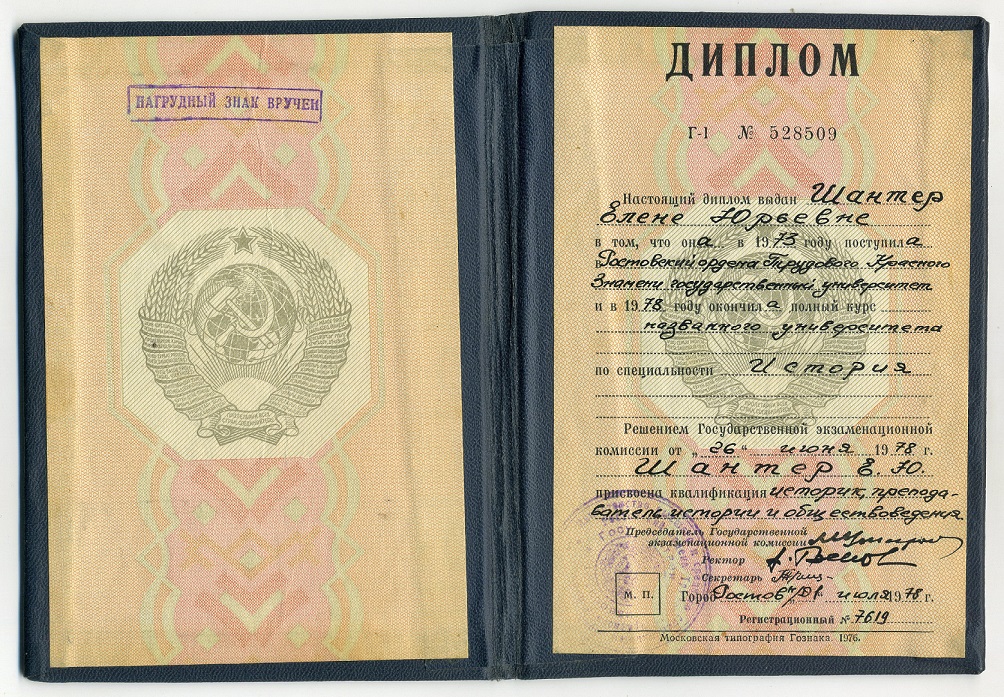 НАГРУДНЫЙ ЗНАК ВРУЧЕН
ДИПЛОМ
Г-I № 528509
Настоящий диплом выдан Шантер
Елене Юрьевне
в том, что она в 1973 году поступила
в Ростовский ордена Трудового Красного
Знамени государственный университет
и в 1978 году окончила полный курс
названного университета
по специальности История
Решением Государственной экзаменационной
комиссии от „26“ июня 1978 г.
Шантер Е. Ю.
присвоена квалификация историк, препода-
ватель истории и обществоведения
Председатель Государственной
экзаменационной комиссии
Ректор
Секретарь
М. П.
Город Ростов н/Д 1978 г.
июля
Регистрационный № 7619
Московская типография Гознака. 1976.